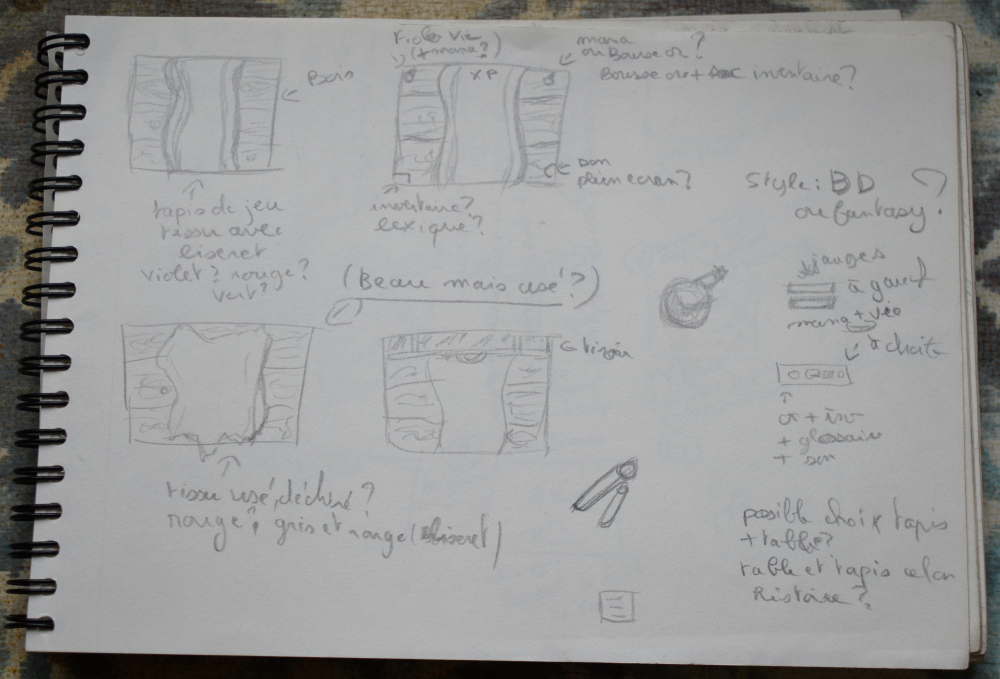 Bois
tapis de jeu
tissu avec
liseret
violet? rouge?
vert?
Fiole vie
(+ mana?)
XP
mana ?
ou Bourse or
Bourse or + inventaire?
son
plein ecran?
inventaire?
lexique?
(Beau mais usé?)
tissu usé, déchiré?
rouge?, gris et rouge (liseret)
Style: BD ?
ou fantasy.
jauges
à gauche
mana + vie
à droite
or + inv
+ glossaire
+ son
possible choix tapis
+ table?
table et tapis selon
histoire?